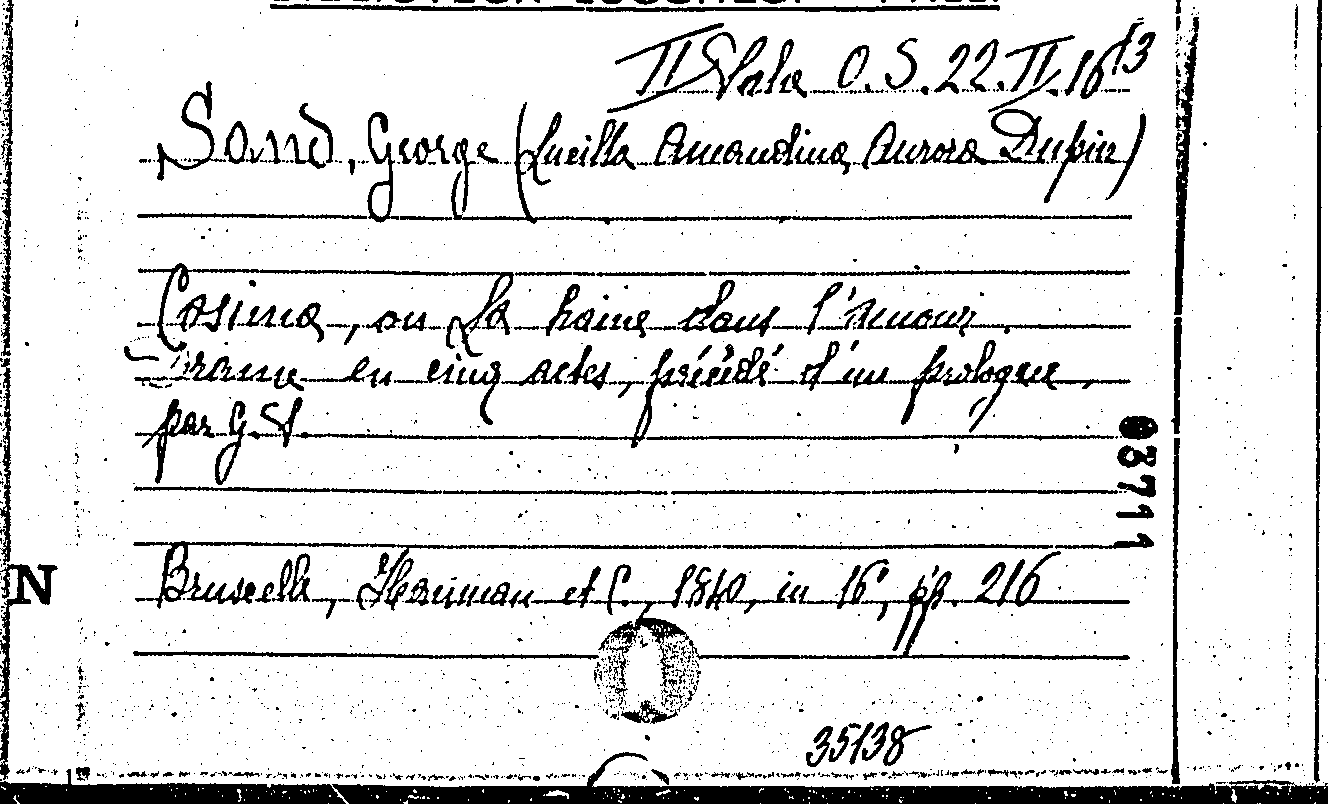 II Sala O.S. 22.II.16 13
Sand, George (Lucilla Amandina Aurora Dupin)
Cosima, ou La haine dans l'Amour.
Drame en cinq actes, précédé d'un prologue,
par G. S.
03711
N
Bruxelle, Hauman et C., 1840, in 16°, pp. 216
35138